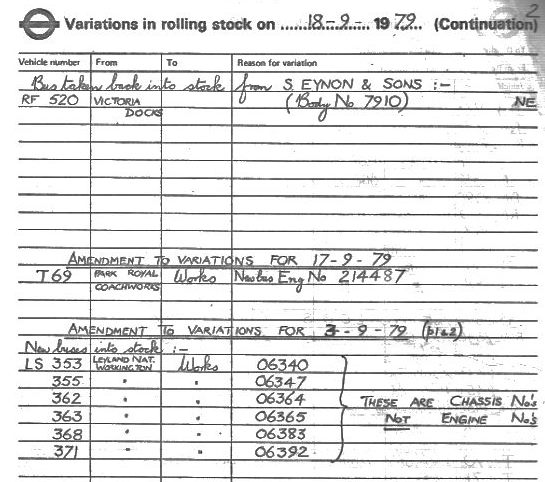 2
Variations in rolling stock on ......18-9-...... 19 79.... (Continuation)
Vehicle number From To Reason for variation
Bus taken back into stock from S. EYNON & SONS :-
RF 520 VICTORIA (Body No 7910) NE
DOCKS
AMENDMENT TO VARIATIONS FOR 17-9-79
T69 PARK ROYAL Works New bus Eng No 214487
COACHWORKS
AMENDMENT TO VARIATIONS FOR 3-9-79 (p1&2)
New buses into stock :-
LS 353 LEYLAND NAT. Works 06340
WORKINGTON
355 " " 06347
362 " " 06364 THESE ARE CHASSIS No's
363 " " 06365 NOT ENGINE No's
368 " " 06383
371 " " 06392